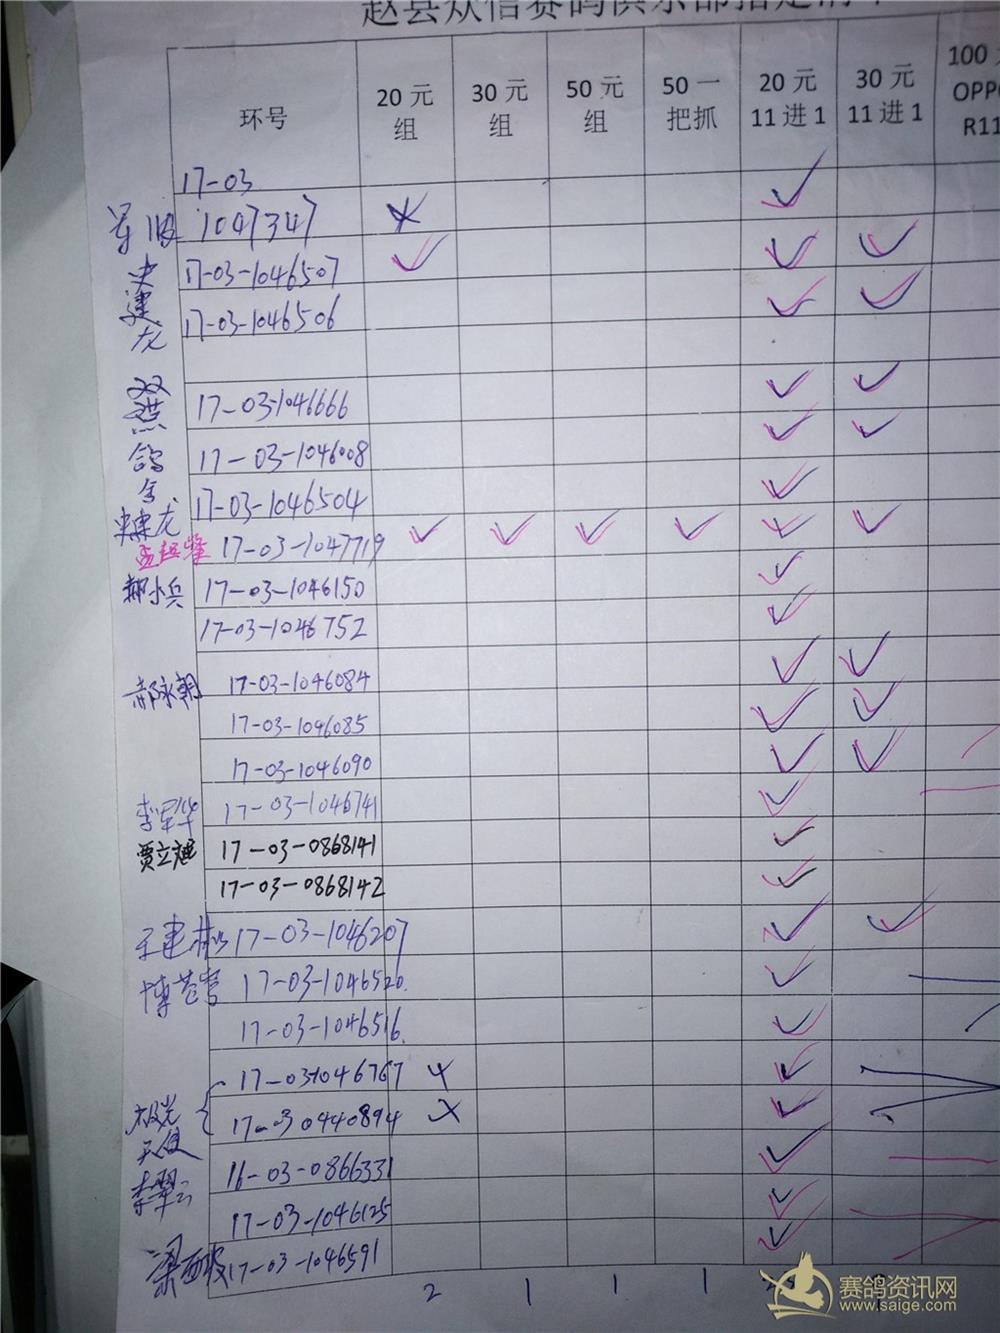 赵县众信赛鸽俱乐部指定清单
环号 20元组 30元组 50元组 50一把抓 20元11进1 30元11进1 100 OPPO R11
17-03
1047347
17-03-1046507
史建龙
17-03-1046506
17-03-1046666
17-03-1046008
17-03-1046504
17-03-1047719
郝小兵 17-03-1046150
17-03-1046752
郝永朝 17-03-1046084
17-03-1046085
17-03-1046090
李军华 17-03-1046741
贾立 17-03-0868141
17-03-0868142
王建彬 17-03-1046207
17-03-1046520
17-03-1046516
17-03-1046767
极光天使 17-03 0440894
16-03-0866331
李翠云
17-03-1046125
梁西波 17-03-1046591
2 1 1 1
赛鸽资讯网
www.saige.com